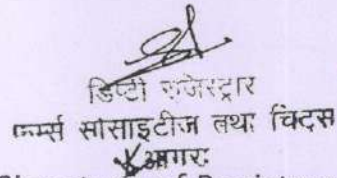 डिप्टी रजिस्ट्रार
फर्म्स सोसाइटीज तथा चिट्स
आगरा